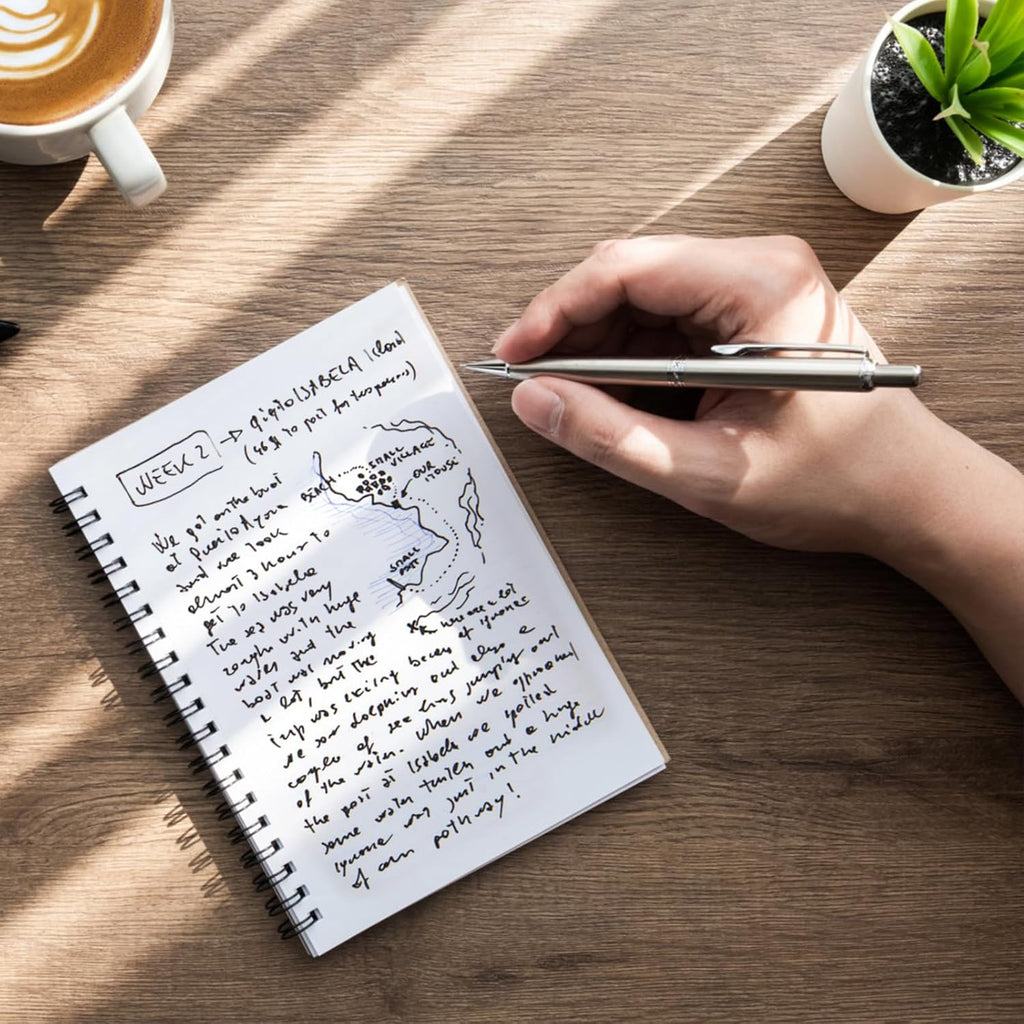 WEEK 2 → ISABELA Island
(46$ to get
SMALL
VILLAGE
OUR
HOUSE
BEACH
SMALL
PORT
We got on the boat
at Puerto Ayora
and we took
almost 3 hour to
get to Isabela
The sea was very
rough with huge
waves and the
boat was moving
a lot, but the
trip was exciting because
we saw dolphins and also a
couple of sea lions jumping out
of the water. When we approached
the port at Isabela we spotted
some water turtles and a huge
iguana was just in the middle
of our pathway!
were a lot
of iguanas